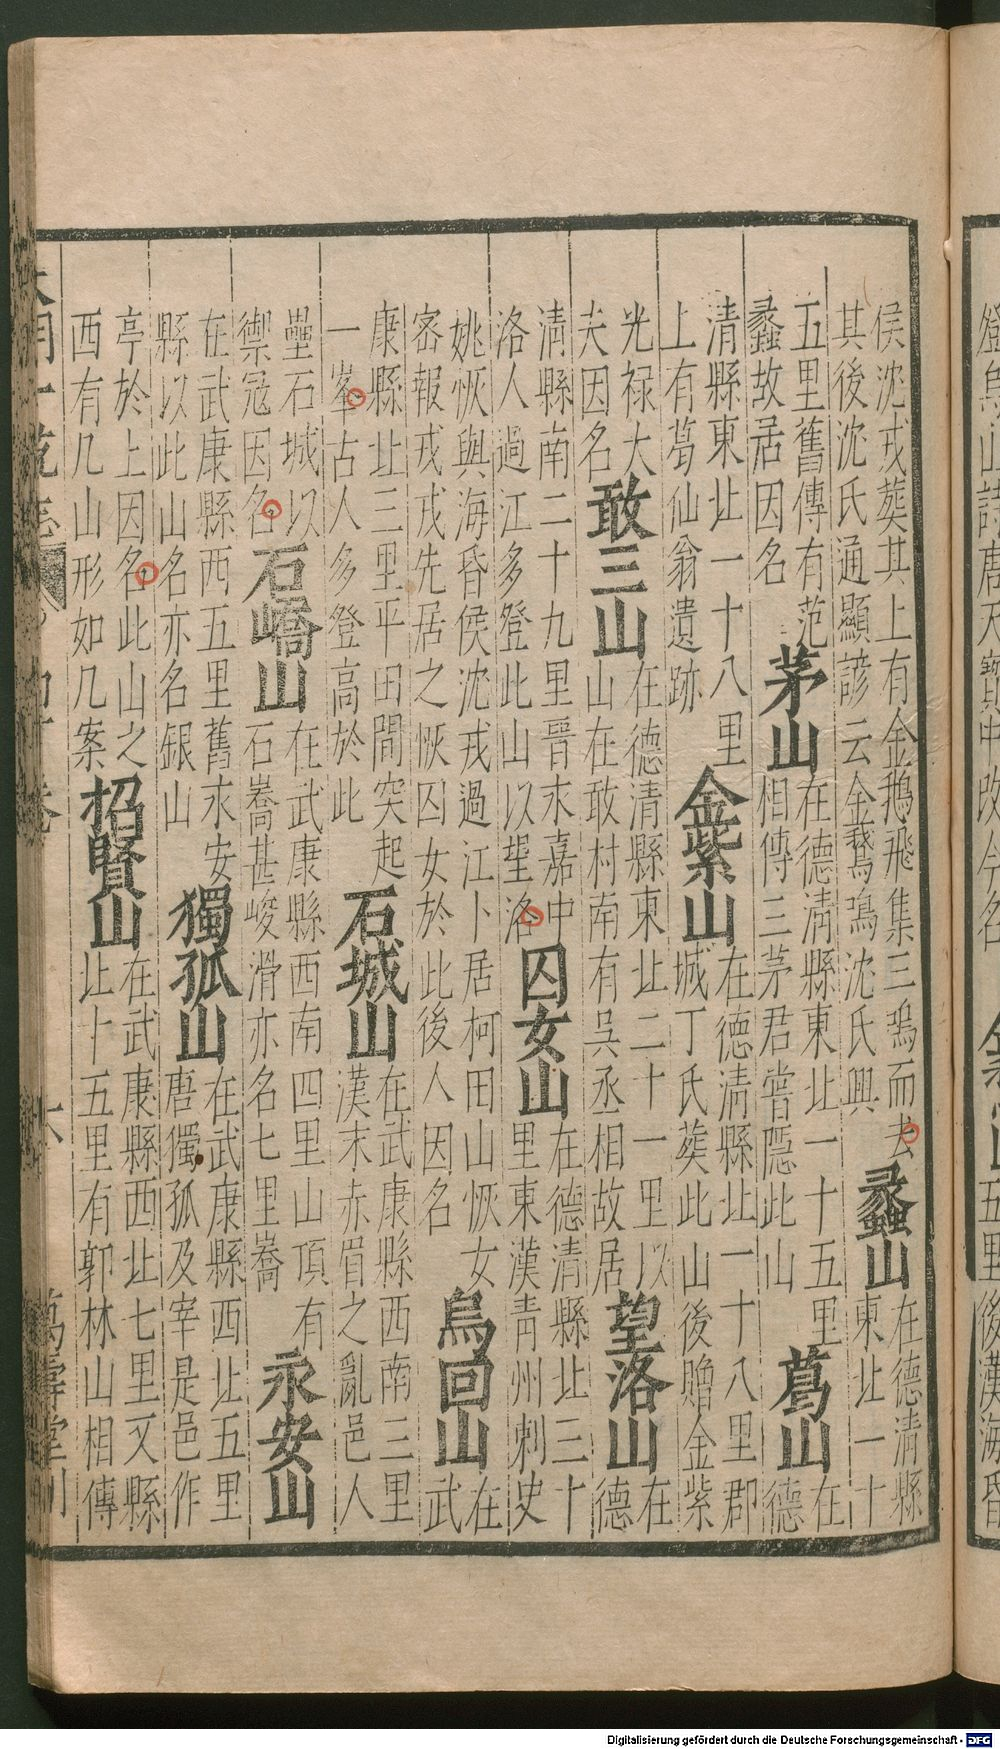 詩唐天寶中改今名
五里後漢海昏
侯沈戎葬其上有金鵝飛集三鳴而去
其後沈氏通顯諺云金鵝鳴沈氏興
蠡山
在德清縣
東北一十
五里舊傳有范
蠡故居因名
茅山
在德清縣東北一十五里
相傳三茅君嘗隱此山
葛山
在
德
清縣東北一十八里
上有葛仙翁遺跡
金紫山
在德清縣北一十八里郡
城丁氏葬此山後贈金紫
光祿大
夫因名
敢三山
在德清縣東北二十一里以
山在敢村南有吳丞相故居
望落山
在
德
清縣南二十九里晉末嘉中
洛人過江多登此山以望洛
囚女山
在德清縣北三十
里東漢青州刺史
姚恢與海昏侯沈戎過江卜居柯田山恢女
密報戎戎先居之恢囚女於此後人因名
烏回山
在
武
康縣北三里平田間突起
一峯古人多登高於此
石城山
在武康縣西南三里
漢末赤眉之亂邑人
壘石城以
禦寇因名
石嶠山
在武康縣西南四里山頂有
石嵩甚峻滑亦名七里嵩
永安山
在武康縣西五里舊永安
縣以此山名亦名銀山
獨孤山
在武康縣西北五里
唐獨孤及宰是邑作
亭於上因名此山之
西有几山形如几案
招賢山
在武康縣西北七里又縣
北十五里有郭林山相傳
大明一統志
卷
六
萬壽堂刊
Digitalisierung gefördert durch die Deutsche Forschungsgemeinschaft - DFG